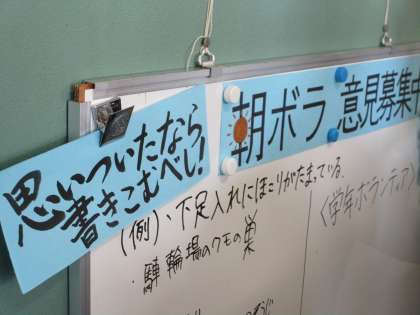 思いついたなら
書きこむべし!
朝ボラ 意見募集中
(例)、下足入れにほこりがたまっている。
・駐輪場のクモの巣
〈学年ボランティア〉